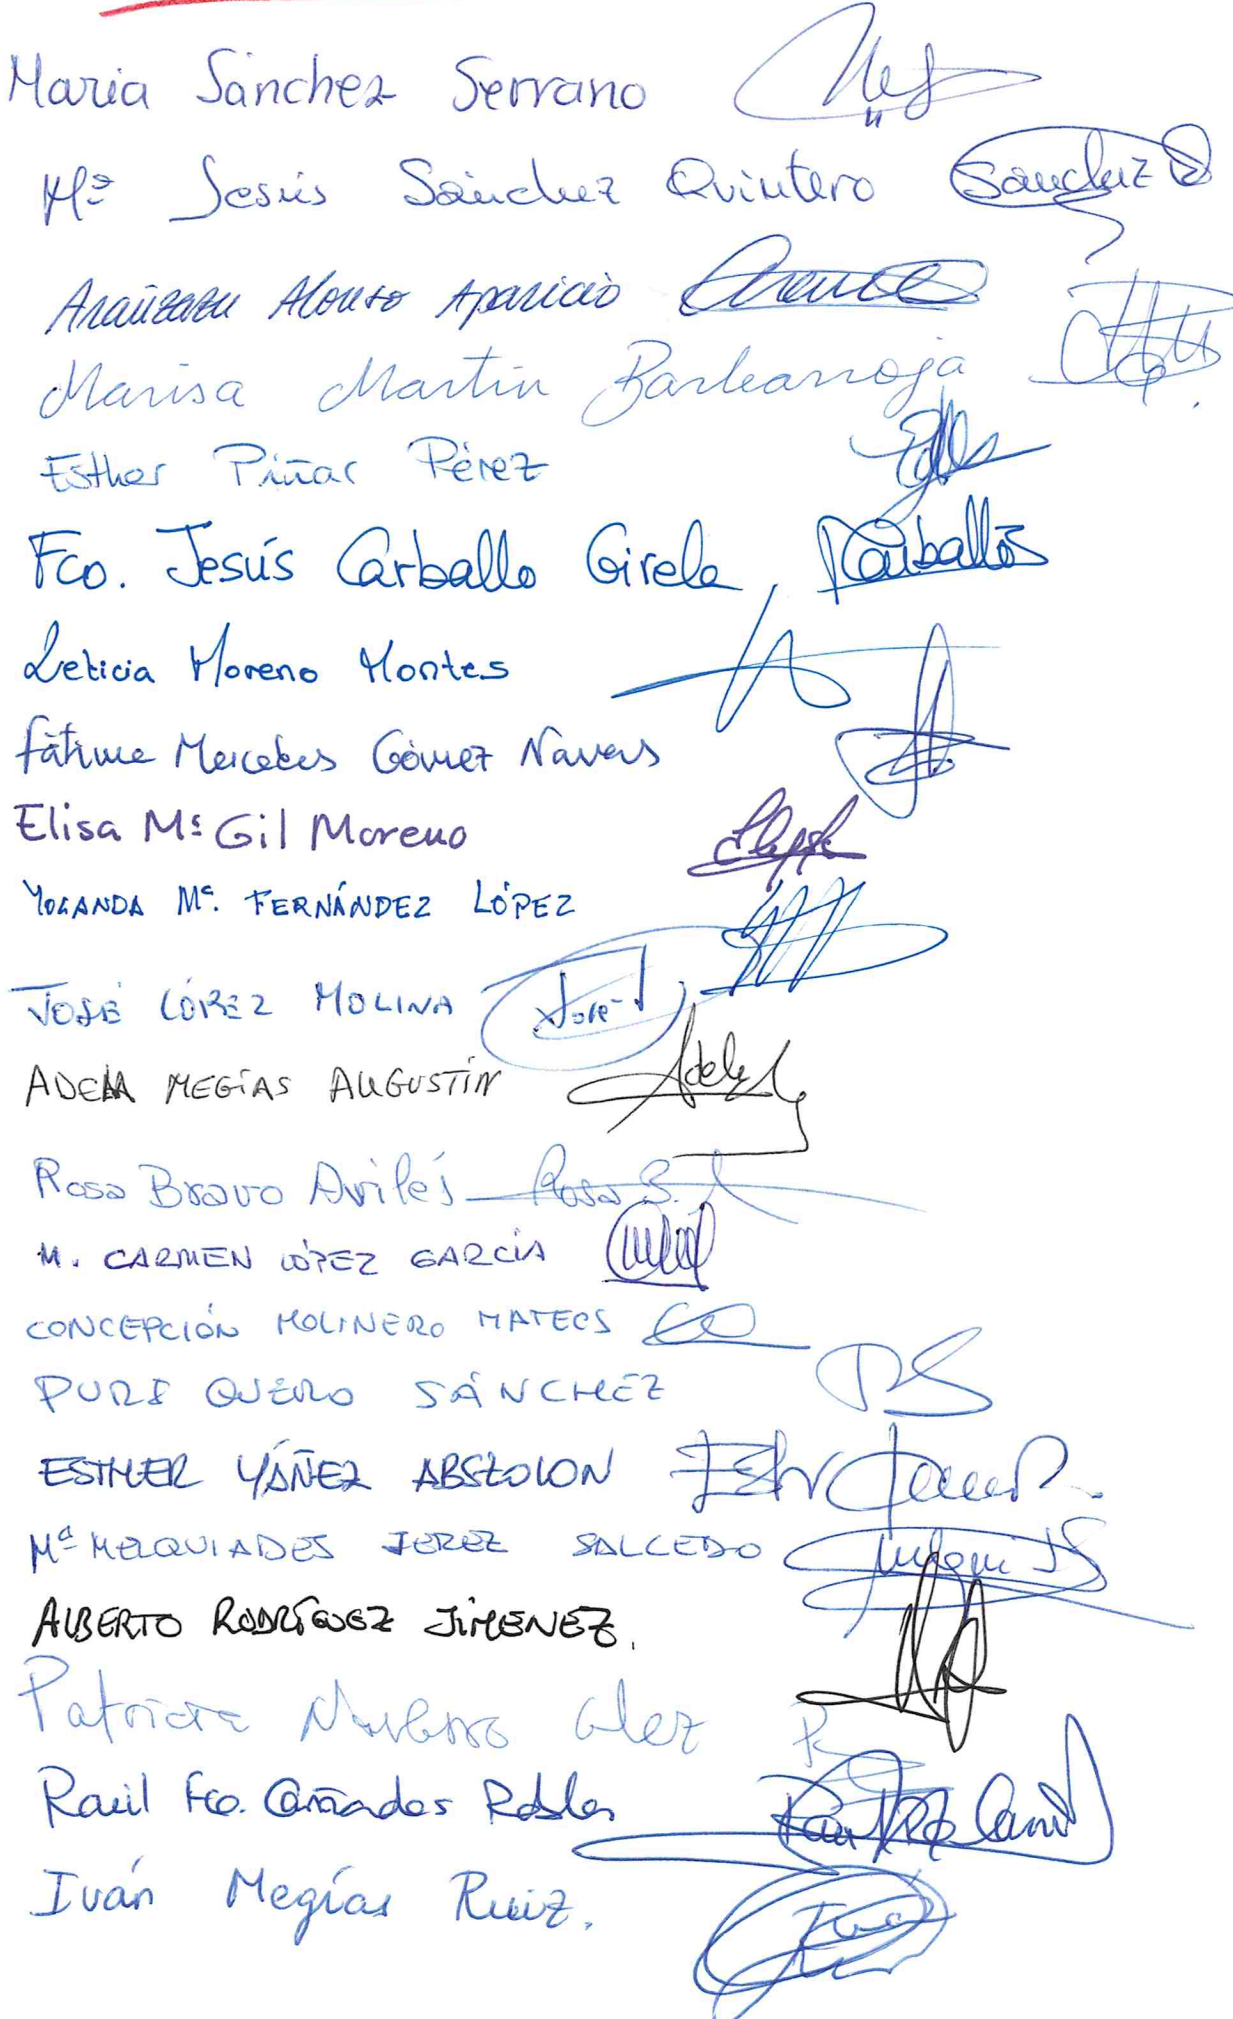 Maria Sánchez Serrano
Mª Jesús Sánchez Quintero Sanchez
Aránzazu Alonso Aparicio
Marisa Martín Barbarroja
Esther Piñar Pérez
Fco. Jesús Carballo Girela Carballo
Leticia Moreno Montes
Fátima Mercedes Gómez Navas
Elisa Mª Gil Moreno
YOLANDA Mª. FERNÁNDEZ LÓPEZ
JOSÉ LÓPEZ MOLINA José
ADELA MEGÍAS AUGUSTÍN Adela
Rosa Bravo Avilés Rosa B.
M. CARMEN LÓPEZ GARCÍA
CONCEPCIÓN MOLINERO MATEOS
PURI QUERO SÁNCHEZ PS
ESTHER YÁÑEZ ABSZOLON
Mª MELQUIADES JEREZ SALCEDO
ALBERTO RODRÍGUEZ JIMENEZ.
Patricia Glez
Raúl Fco. Cañadas Robles
Iván Megías Ruiz.